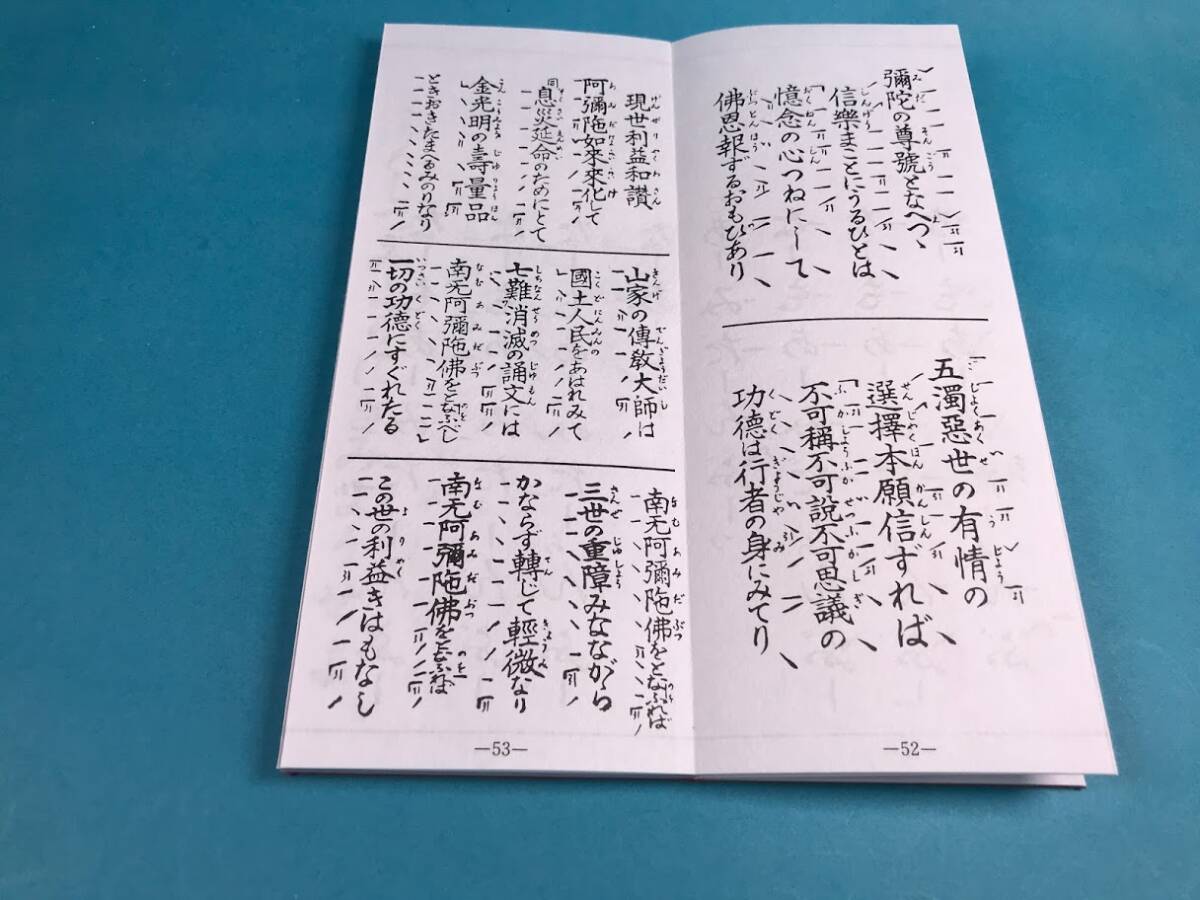 彌陀の尊號となへつゝ
信樂まことにうるひとは
憶念の心つねにして
佛恩報ずるおもひあり
五濁惡世の有情の
選擇本願信ずれば
不可稱不可說不可思議の
功德は行者の身にみてり
—52—
現世利益和讃
阿彌陁如來來化して
同 息災延命のためにとて
金光明の壽量品
ときおきたまへるみのりなり
山家の傳敎大師は
國土人民をあはれみて
七難消滅の誦文には
南无阿彌陁佛をとなふべし
一切の功德にすぐれたる
南无阿彌陁佛をとなふれば
三世の重障みなながら
かならず轉じて輕微なり
南无阿彌陁佛をとなふれば
この世の利益きはもなし
—53—